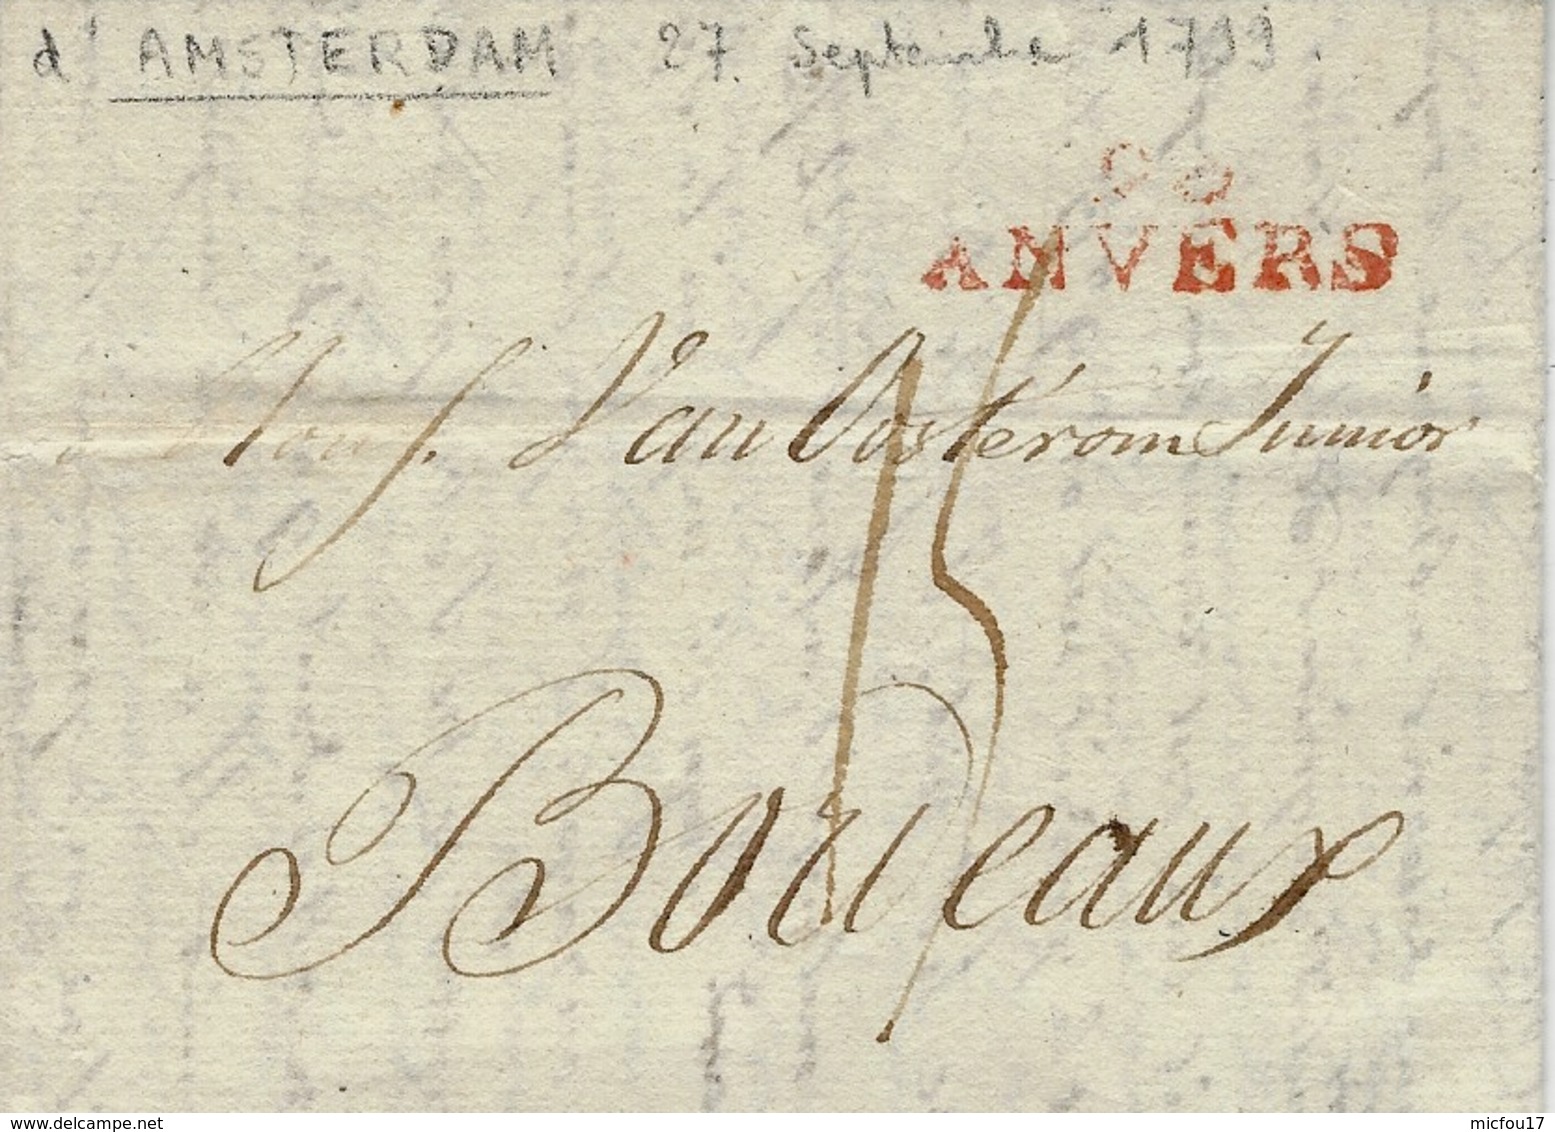 d'AMSTERDAM 27 Septembre 1799.
93
ANVERS
Mons. Van Oostérom Junior
15
Bordeaux
www.delcampe.net micfou17